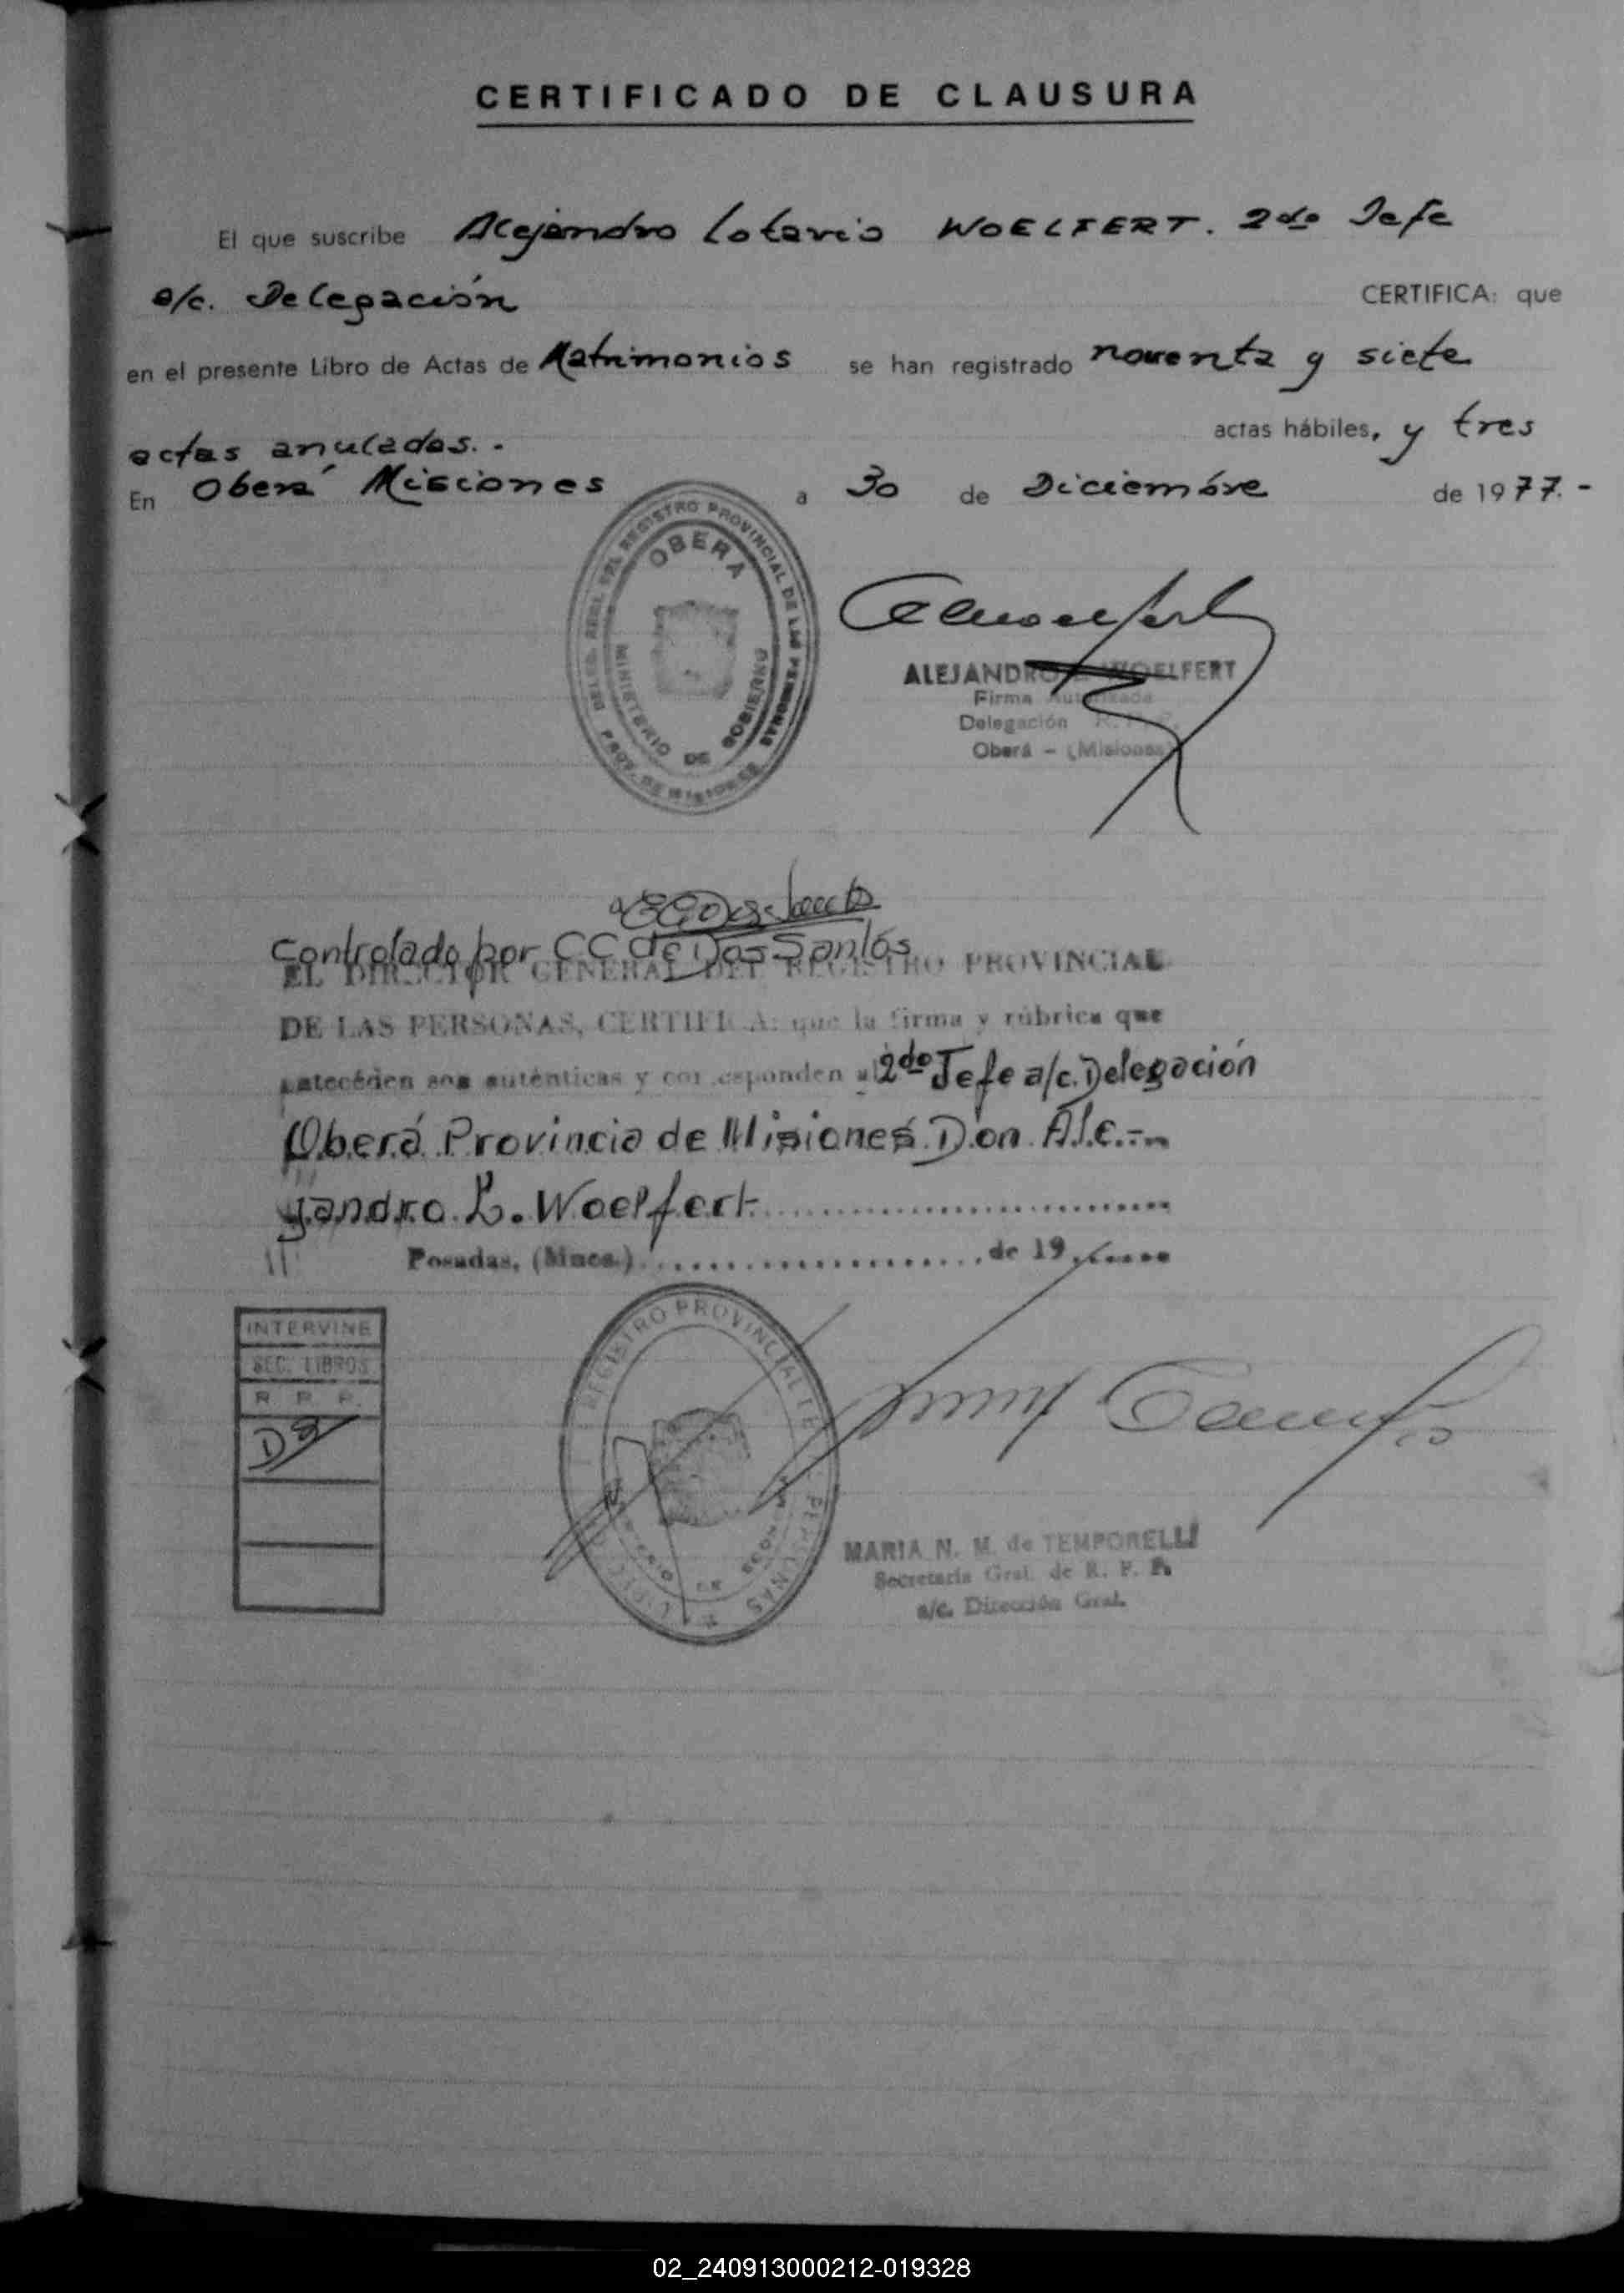 CERTIFICADO DE CLAUSURA
El que suscribe Alejandro Lotario WOELFERT. 2do Jefe
a/c. Delegación CERTIFICA: que
en el presente Libro de Actas de Matrimonios se han registrado noventa y siete
actas hábiles, y tres
actas anuladas. -
En Oberá Misiones a 30 de Diciembre de 1977.-
DEL REGISTRO PROVINCIAL DE LAS PERSONAS
OBERA
MINISTERIO DE GOBIERNO
PROV. DE MISIONES
ALEJANDRO L. WOELFERT
Firma Autorizada
Delegación R.P.P.
Oberá - (Misiones)
Controlado por C C de Dos Santos
EL DIRECTOR GENERAL DEL REGISTRO PROVINCIAL
DE LAS PERSONAS, CERTIFICA: que la firma y rúbrica que
anteceden son auténticas y corresponden al 2do Jefe a/c. Delegación
Oberá Provincia de Misiones Don Ale.-
jandro L. Woelfert
Posadas, (Mnes.) de 19
INTERVINE
SEC. LIBROS
R. P. P.
REGISTRO PROVINCIAL DE PERSONAS
MARIA N. M. de TEMPORELLI
Secretaria Gral. de R. P. P.
a/c. Dirección Gral.
02_240913000212-019328